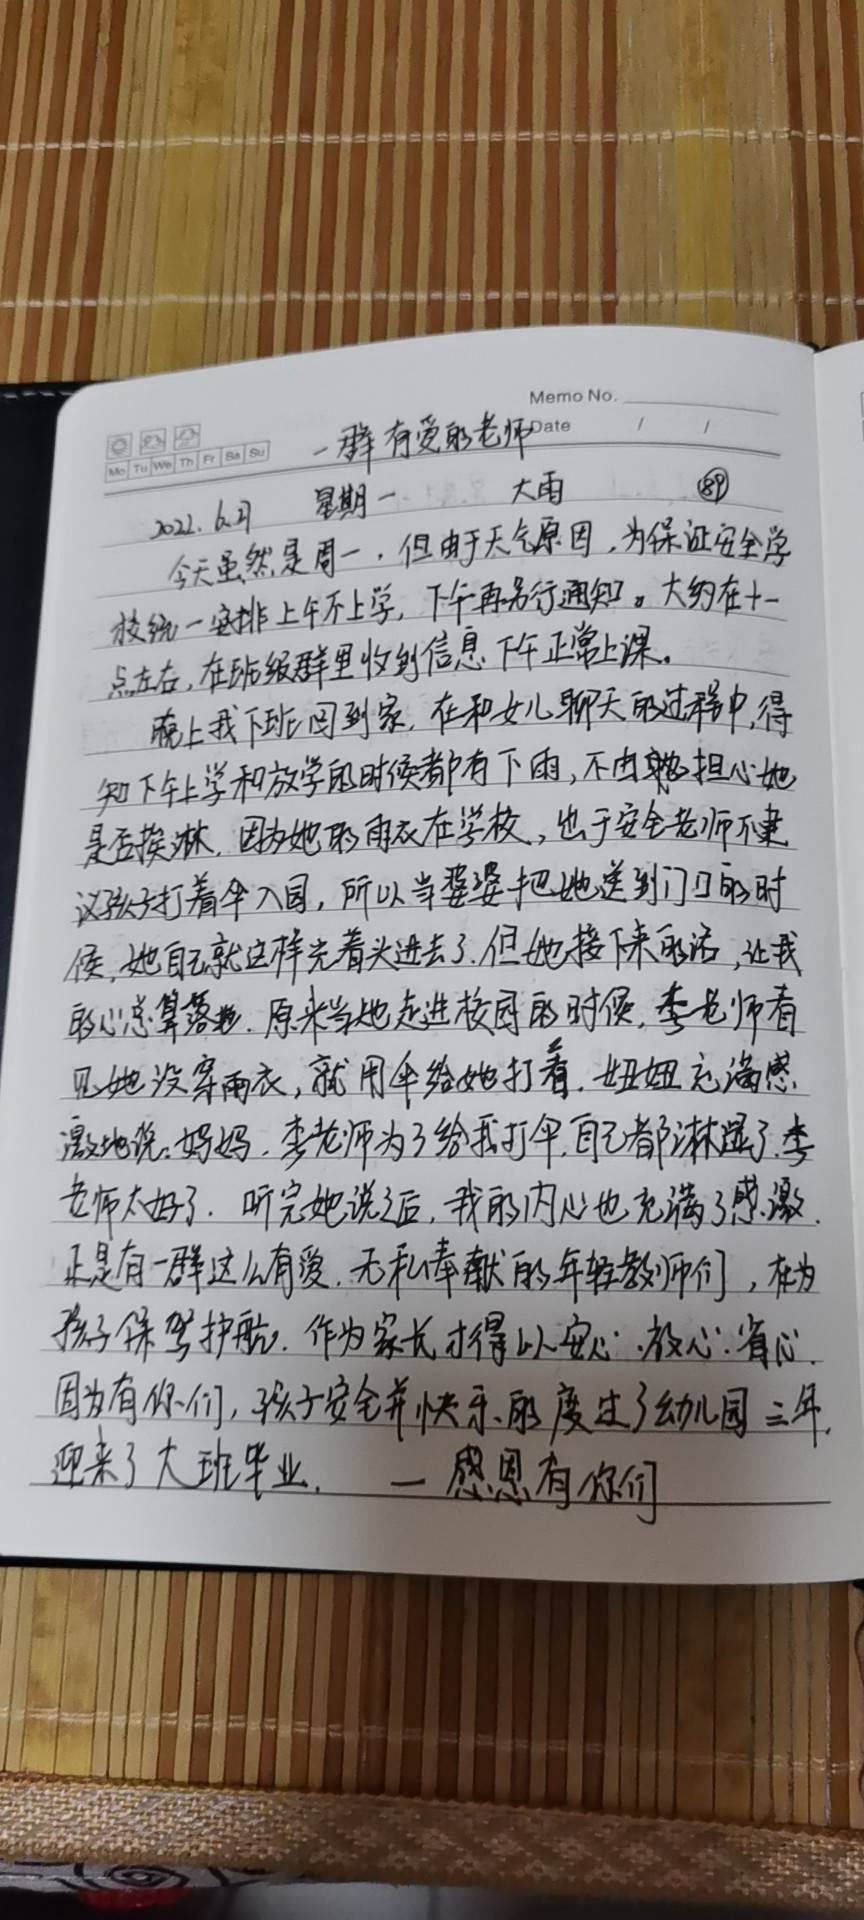 Memo No.
Mo Tu We Th Fr Sa Su
Date / /
一群有爱的老师
2022.6.27 星期一 大雨 89
今天虽然是周一，但由于天气原因，为保证安全学
校统一安排上午不上学，下午再另行通知。大约在十一
点左右，在班级群里收到信息下午正常上课。
晚上我下班回到家，在和女儿聊天的过程中，得
知下午上学和放学的时候都有下雨，不由担心她
是否挨淋，因为她的雨衣在学校，出于安全老师不建
议孩子打着伞入园，所以当婆婆把她送到门口的时
候，她自己就这样光着头进去了.但她接下来的话，让我
的心总算落地.原来当她走进校园的时候，李老师看
见她没穿雨衣，就用伞给她打着.妞妞充满感
激地说：妈妈，李老师为了给我打伞，自己都淋湿了.李
老师太好了.听完她说之后，我的内心也充满了感激.
正是有一群这么有爱、无私奉献的年轻教师们，在为
孩子保驾护航.作为家长才得以安心、放心、省心.
因为有你们，孩子安全并快乐的度过了幼儿园三年，
迎来了大班毕业. 一感恩有你们